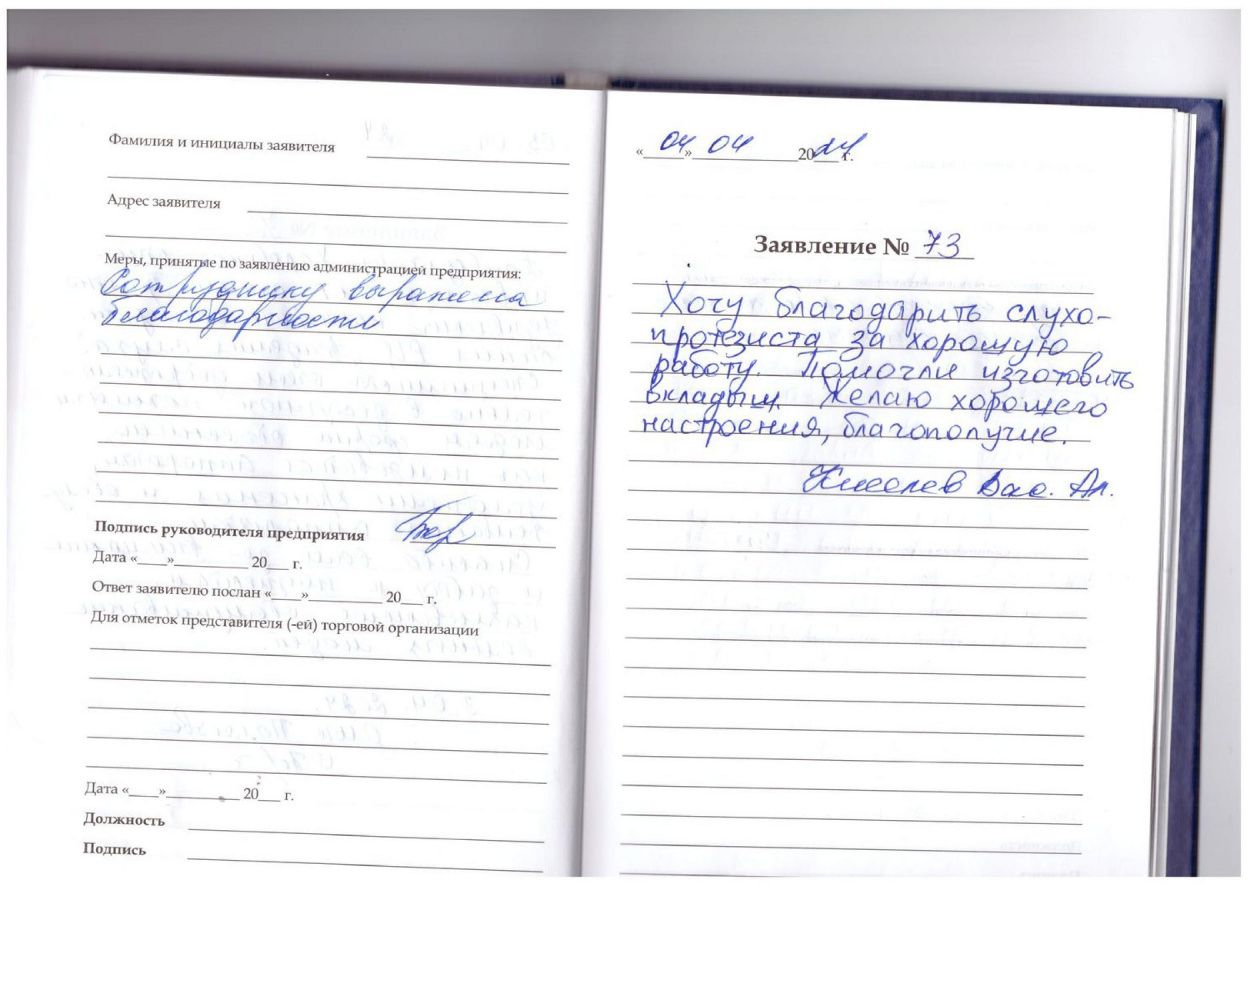 Фамилия и инициалы заявителя
Адрес заявителя
Меры, принятые по заявлению администрацией предприятия:
Сотруднику выражена
благодарность
Подпись руководителя предприятия
Дата «____»__________ 20___ г.
Ответ заявителю послан «____»__________ 20___ г.
Для отметок представителя (-ей) торговой организации
Дата «____»__________ 20___ г.
Должность
Подпись
«04» 04 2024 г.
Заявление № 73
Хочу благодарить слухо-
протезиста за хорошую
работу. Помогли изготовить
вкладыш. Желаю хорошего
настроения, благополучие.
Киселев Вас. Ал.